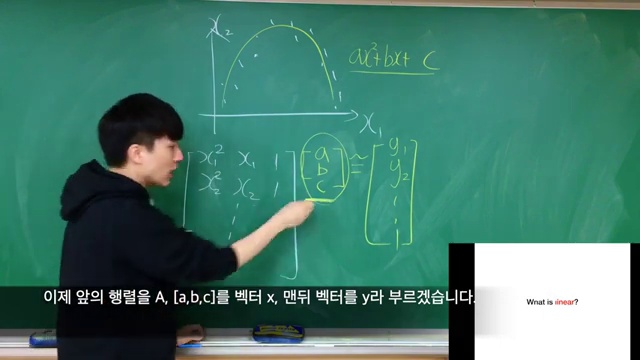 x₂
ax²+bx+c
x₁
[x₁² x₁ 1] [a] ≈ [y₁]
[x₂² x₂ 1] [b] = [y₂]
[c]
이제 앞의 행렬을 A, [a,b,c]를 벡터 x, 맨뒤 벡터를 y라 부르겠습니다.
What is linear?